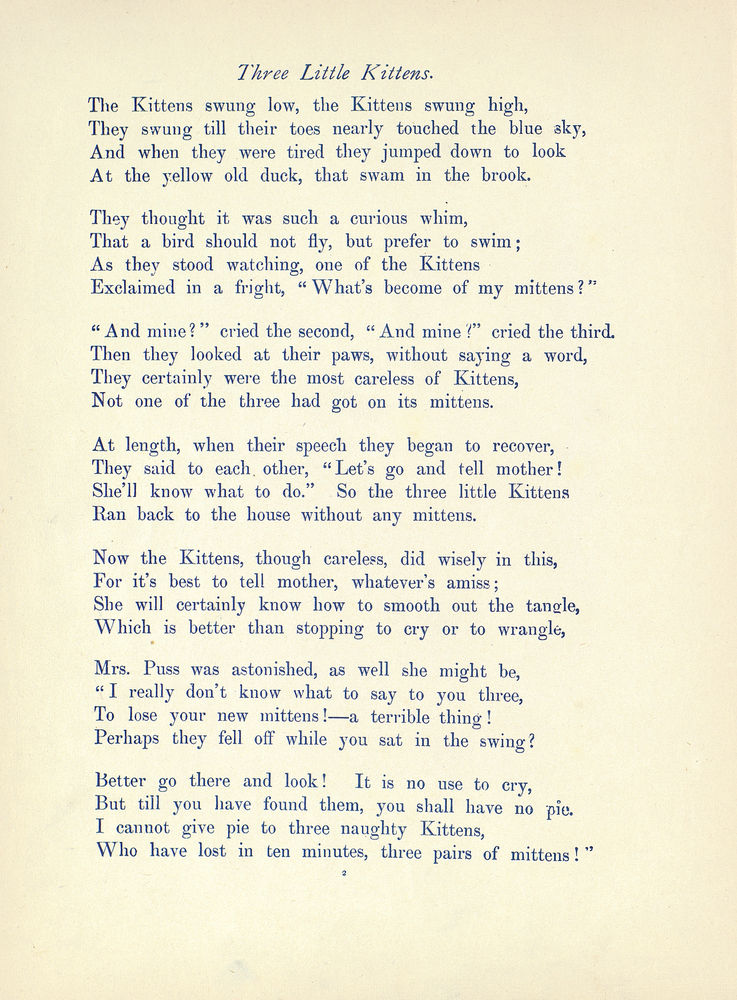 Three Little Kittens.
The Kittens swung low, the Kittens swung high,
They swung till their toes nearly touched the blue sky,
And when they were tired they jumped down to look
At the yellow old duck, that swam in the brook.
They thought it was such a curious whim,
That a bird should not fly, but prefer to swim;
As they stood watching, one of the Kittens
Exclaimed in a fright, “What’s become of my mittens?”
“And mine?” cried the second, “And mine?” cried the third.
Then they looked at their paws, without saying a word,
They certainly were the most careless of Kittens,
Not one of the three had got on its mittens.
At length, when their speech they began to recover,
They said to each other, “Let’s go and tell mother!
She’ll know what to do.” So the three little Kittens
Ran back to the house without any mittens.
Now the Kittens, though careless, did wisely in this,
For it’s best to tell mother, whatever’s amiss;
She will certainly know how to smooth out the tangle,
Which is better than stopping to cry or to wrangle,
Mrs. Puss was astonished, as well she might be,
“I really don’t know what to say to you three,
To lose your new mittens!—a terrible thing!
Perhaps they fell off while you sat in the swing?
Better go there and look! It is no use to cry,
But till you have found them, you shall have no pie.
I cannot give pie to three naughty Kittens,
Who have lost in ten minutes, three pairs of mittens!”
2